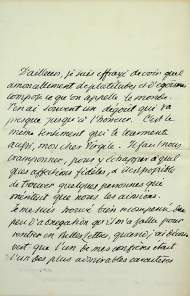 D'ailleurs, je suis effrayé de voir quel
amoncellement de platitudes et d'égoïsme
compose ce qu'on appelle le monde.
J'en ai souvent un dégoût qui va
presque jusqu'à l'horreur. C'est le
même sentiment qui te tourmente
aussi, mon cher Virgile. Il faut nous
cramponner, pour y échapper à quel
ques affections fidèles, et
de trouver quelques personnes que
méritent que nous les aimions.
Je me suis trouvé bien récompensé du
peu d'abnégation qu'il m'a fallu pour
rentrer en Belles-lettres, quand j'ai décou
vert que l'un de mes confrères était
l'un des plus admirables caractères